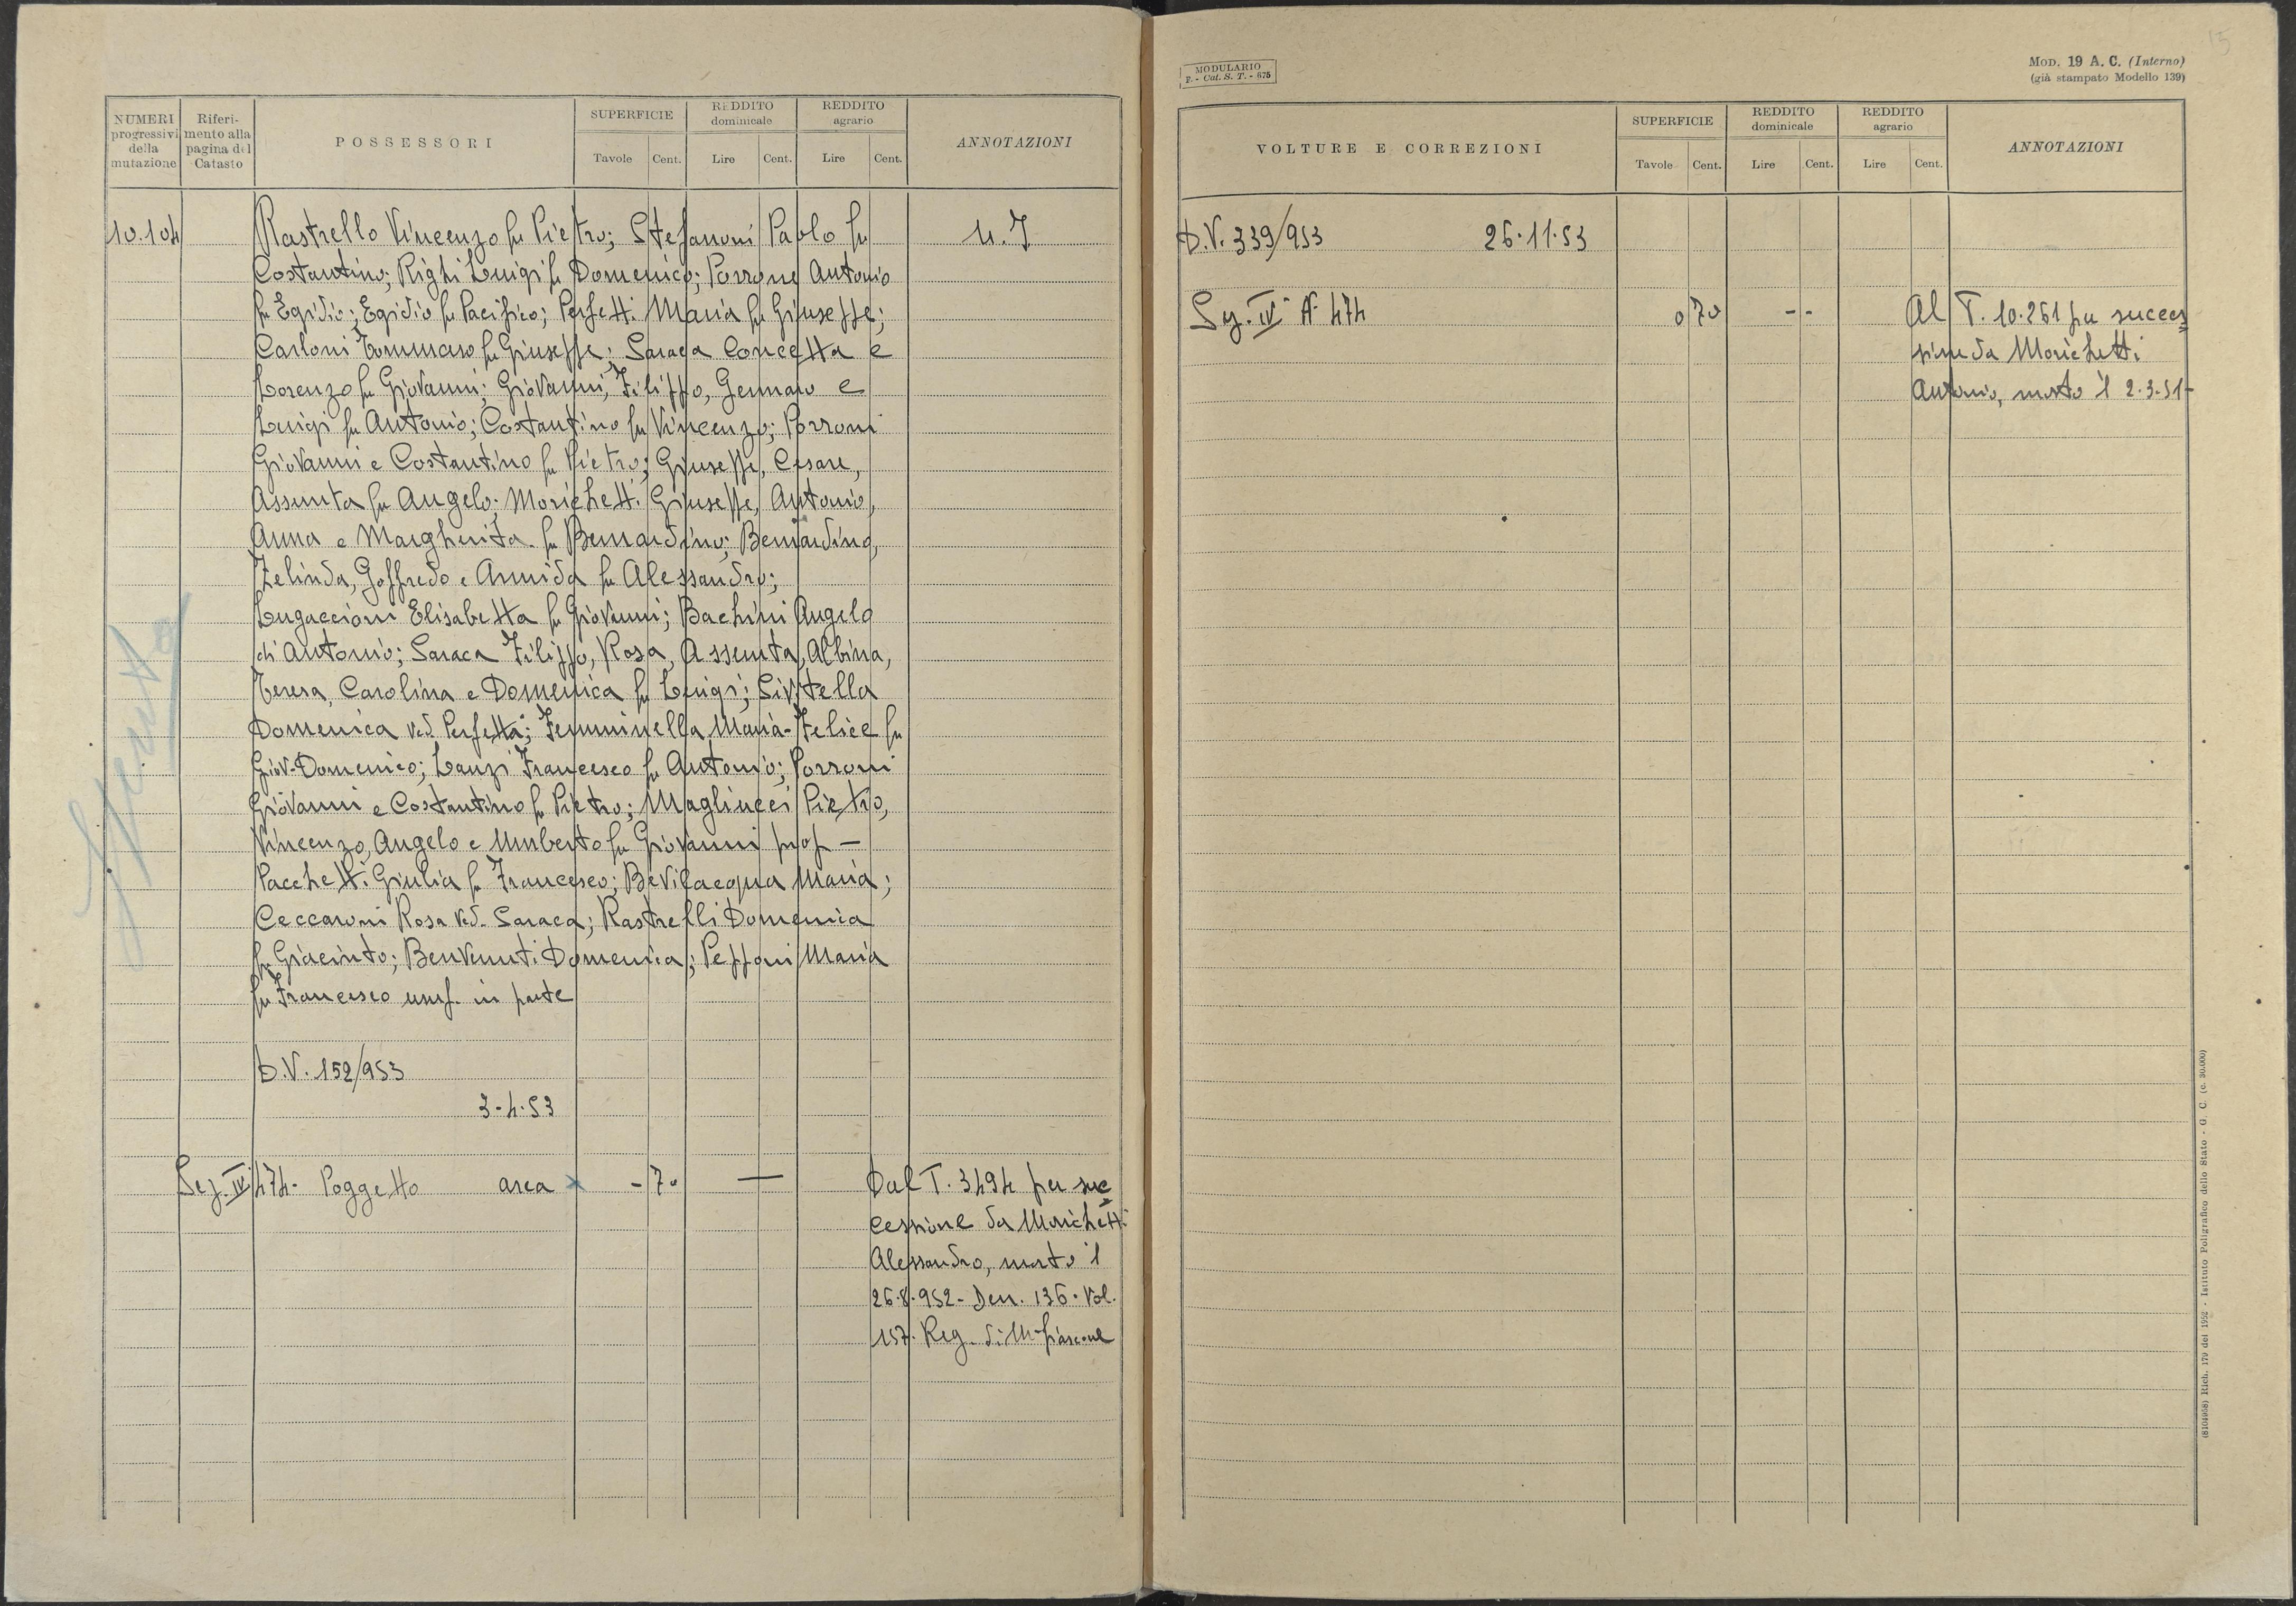 NUMERI progressivi della mutazione
Riferimento alla pagina del Catasto
POSSESSORI
SUPERFICIE
Tavole Cent.
REDDITO dominicale
Lire Cent.
REDDITO agrario
Lire Cent.
ANNOTAZIONI
10.104 Rastrello Vincenzo fu Pietro; Stefanoni Paolo fu
Costantino; Righi Luigi fu Domenico; Porrone Antonio
fu Egidio; Egidio fu Pacifico; Perfetti Maria fu Giuseppe;
Carloni Tommaso fu Giuseppe; Saraca Concetta e
Lorenzo fu Giovanni; Giovanni, Filippo, Gennaro e
Luigi fu Antonio; Costantino fu Vincenzo; Porroni
Giovanni e Costantino fu Pietro; Giuseppe, Cesare,
Assunta fu Angelo; Morichetti Giuseppe, Antonio,
Anna e Margherita fu Bernardino; Bernardino,
Zelinda, Goffredo e Armida fu Alessandro;
Lugaccioni Elisabetta fu Giovanni; Bachini Angelo
di Antonio; Saraca Filippo, Rosa, Assunta, Albina,
Teresa, Carolina e Domenica fu Luigi; Sivitella
Domenica ved. Perfetti; Femminella Maria-Felice fu
Giov-Domenico; Lanzi Francesco fu Antonio; Porroni
Giovanni e Costantino fu Pietro; Magliucci Pietro,
Vincenzo, Angelo e Umberto fu Giovanni prop —
Pacchetti Giulia fu Francesco; Bevilacqua Maria;
Ceccaroni Rosa ved. Saraca; Rastrelli Domenica
fu Giacinto; Benvenuti Domenica; Pepponi Maria
fu Francesco usuf. in parte
D.V. 152/953
3-4-53
Sez. IV 474- Poggetto area x -70 — Dal T. 3494 per suc
cessione da Morichetti
Alessandro, morto il
26.8.952- Den. 136. Vol.
157. Reg. di M-fiascone
MODULARIO
F. - Cat. S. T. - 675
15
MOD. 19 A. C. (Interno)
(già stampato Modello 139)
VOLTURE E CORREZIONI
SUPERFICIE
Tavole Cent.
REDDITO dominicale
Lire Cent.
REDDITO agrario
Lire Cent.
ANNOTAZIONI
D.V. 339/953 26.11.53
Sez. IV N 474 0 70 -- Al T. 10.261 per succes
sione da Morichetti
Antonio, morto il 2.3.51-
(8104958) Rich. 170 del 1952 - Istituto Poligrafico dello Stato - G. C. (c. 30.000)